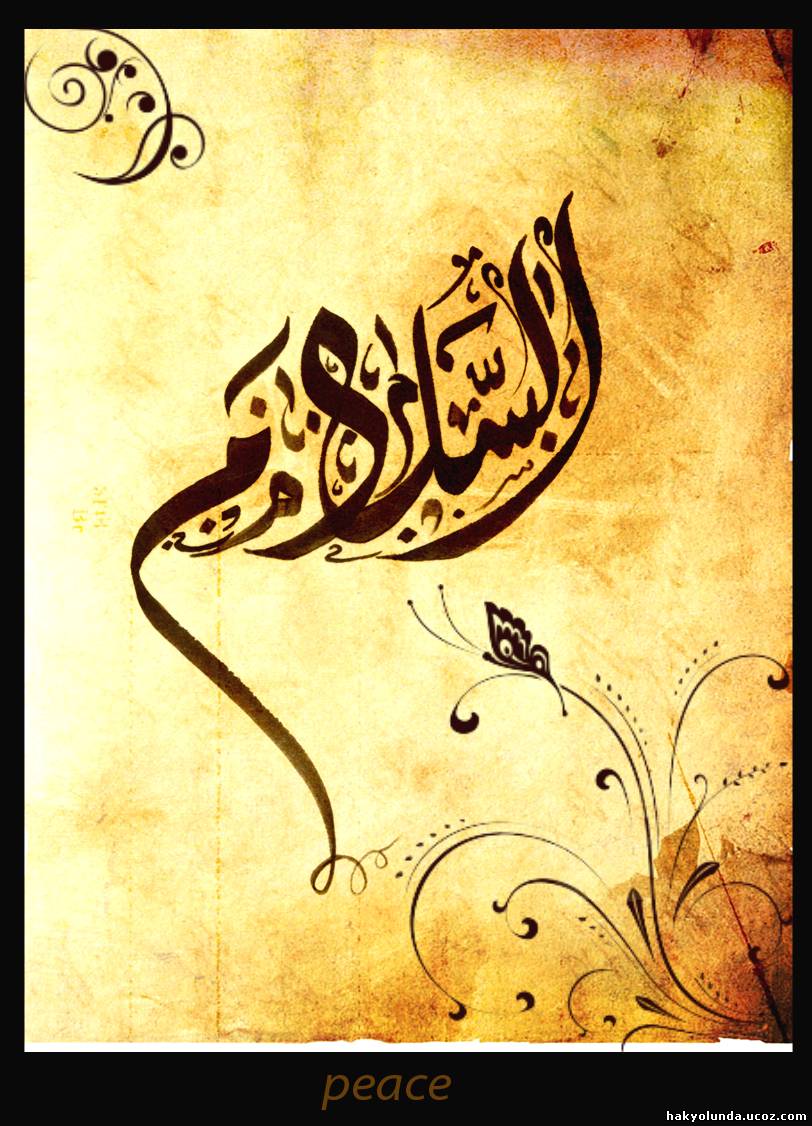 السَّلَام
peace
hakyolunda.ucoz.com